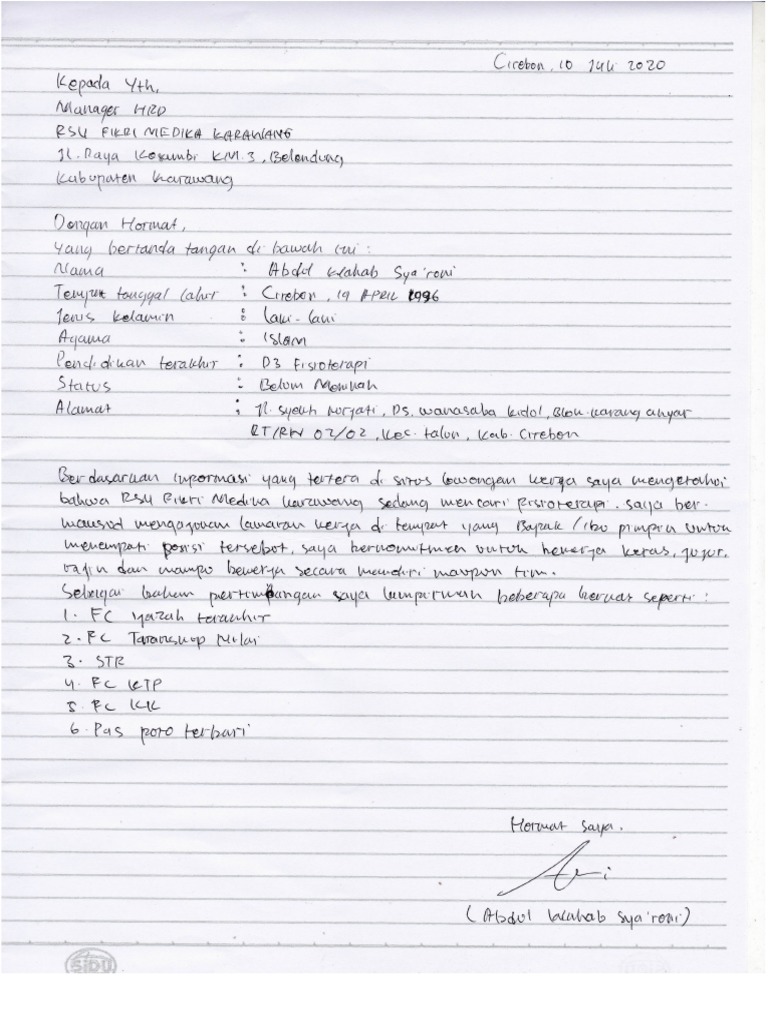 Cirebon, 10 Juli 2020
Kepada Yth,
Manager HRD
RSU FIKRI MEDIKA KARAWANG
Jl. Raya Kosambi KM.3, Belendung
Kabupaten Karawang
Dengan Hormat,
Yang bertanda tangan di bawah ini :
Nama : Abdul Wahab Sya'roni
Tempat tanggal lahir : Cirebon, 19 APRIL 1996
Jenis kelamin : Laki-laki
Agama : Islam
Pendidikan terakhir : D3 Fisioterapi
Status : Belum Menikah
Alamat : Jl. Syekh Nurjati, Ds. Wanasaba kidol, Blok. Karang anyar
RT/RW 02/02, Kec. talun, Kab. Cirebon
Berdasarkan informasi yang tertera di situs lowongan kerja saya mengetahui
bahwa RSU Fikri Medika Karawang sedang mencari Fisioterapi. saya ber-
maksud mengajukan lamaran kerja di tempat yang Bapak / ibu pimpin untuk
menempati posisi tersebut, saya berkomitmen untuk bekerja keras, jujur,
rajin dan mampu bekerja secara mandiri maupun tim.
Sebagai bahan pertimbangan saya lampirkan beberapa berkas seperti :
1. FC ijazah terakhir
2. FC Taranskip Nilai
3. STR
4. FC KTP
5. FC KK
6. Pas poto terbari
Hormat saya.
(Abdul Wahab Sya'roni)
SIDU